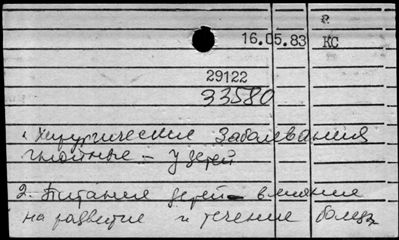 г.
16.05.83 КС
29122
33580
1. Хирургические заболевания
гнойные - у детей
2. Питание детей - влияние
на развитие и течение болезн